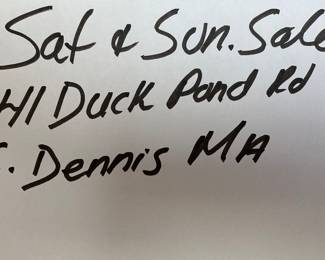 Sat & Sun. Sale
41 Duck Pond Rd
. Dennis MA